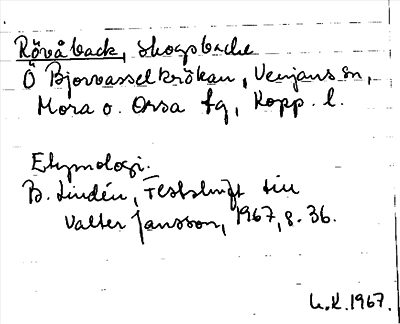 Rövåback, skogsbacke
Ö Bjorvasselkrökan, Venjans sn,
Mora o. Orsa tg, Kopp. l.
Etymologi.
B. Lindén, Festskrift till
Valter Jansson, 1967, s. 36.
L.K. 1967.